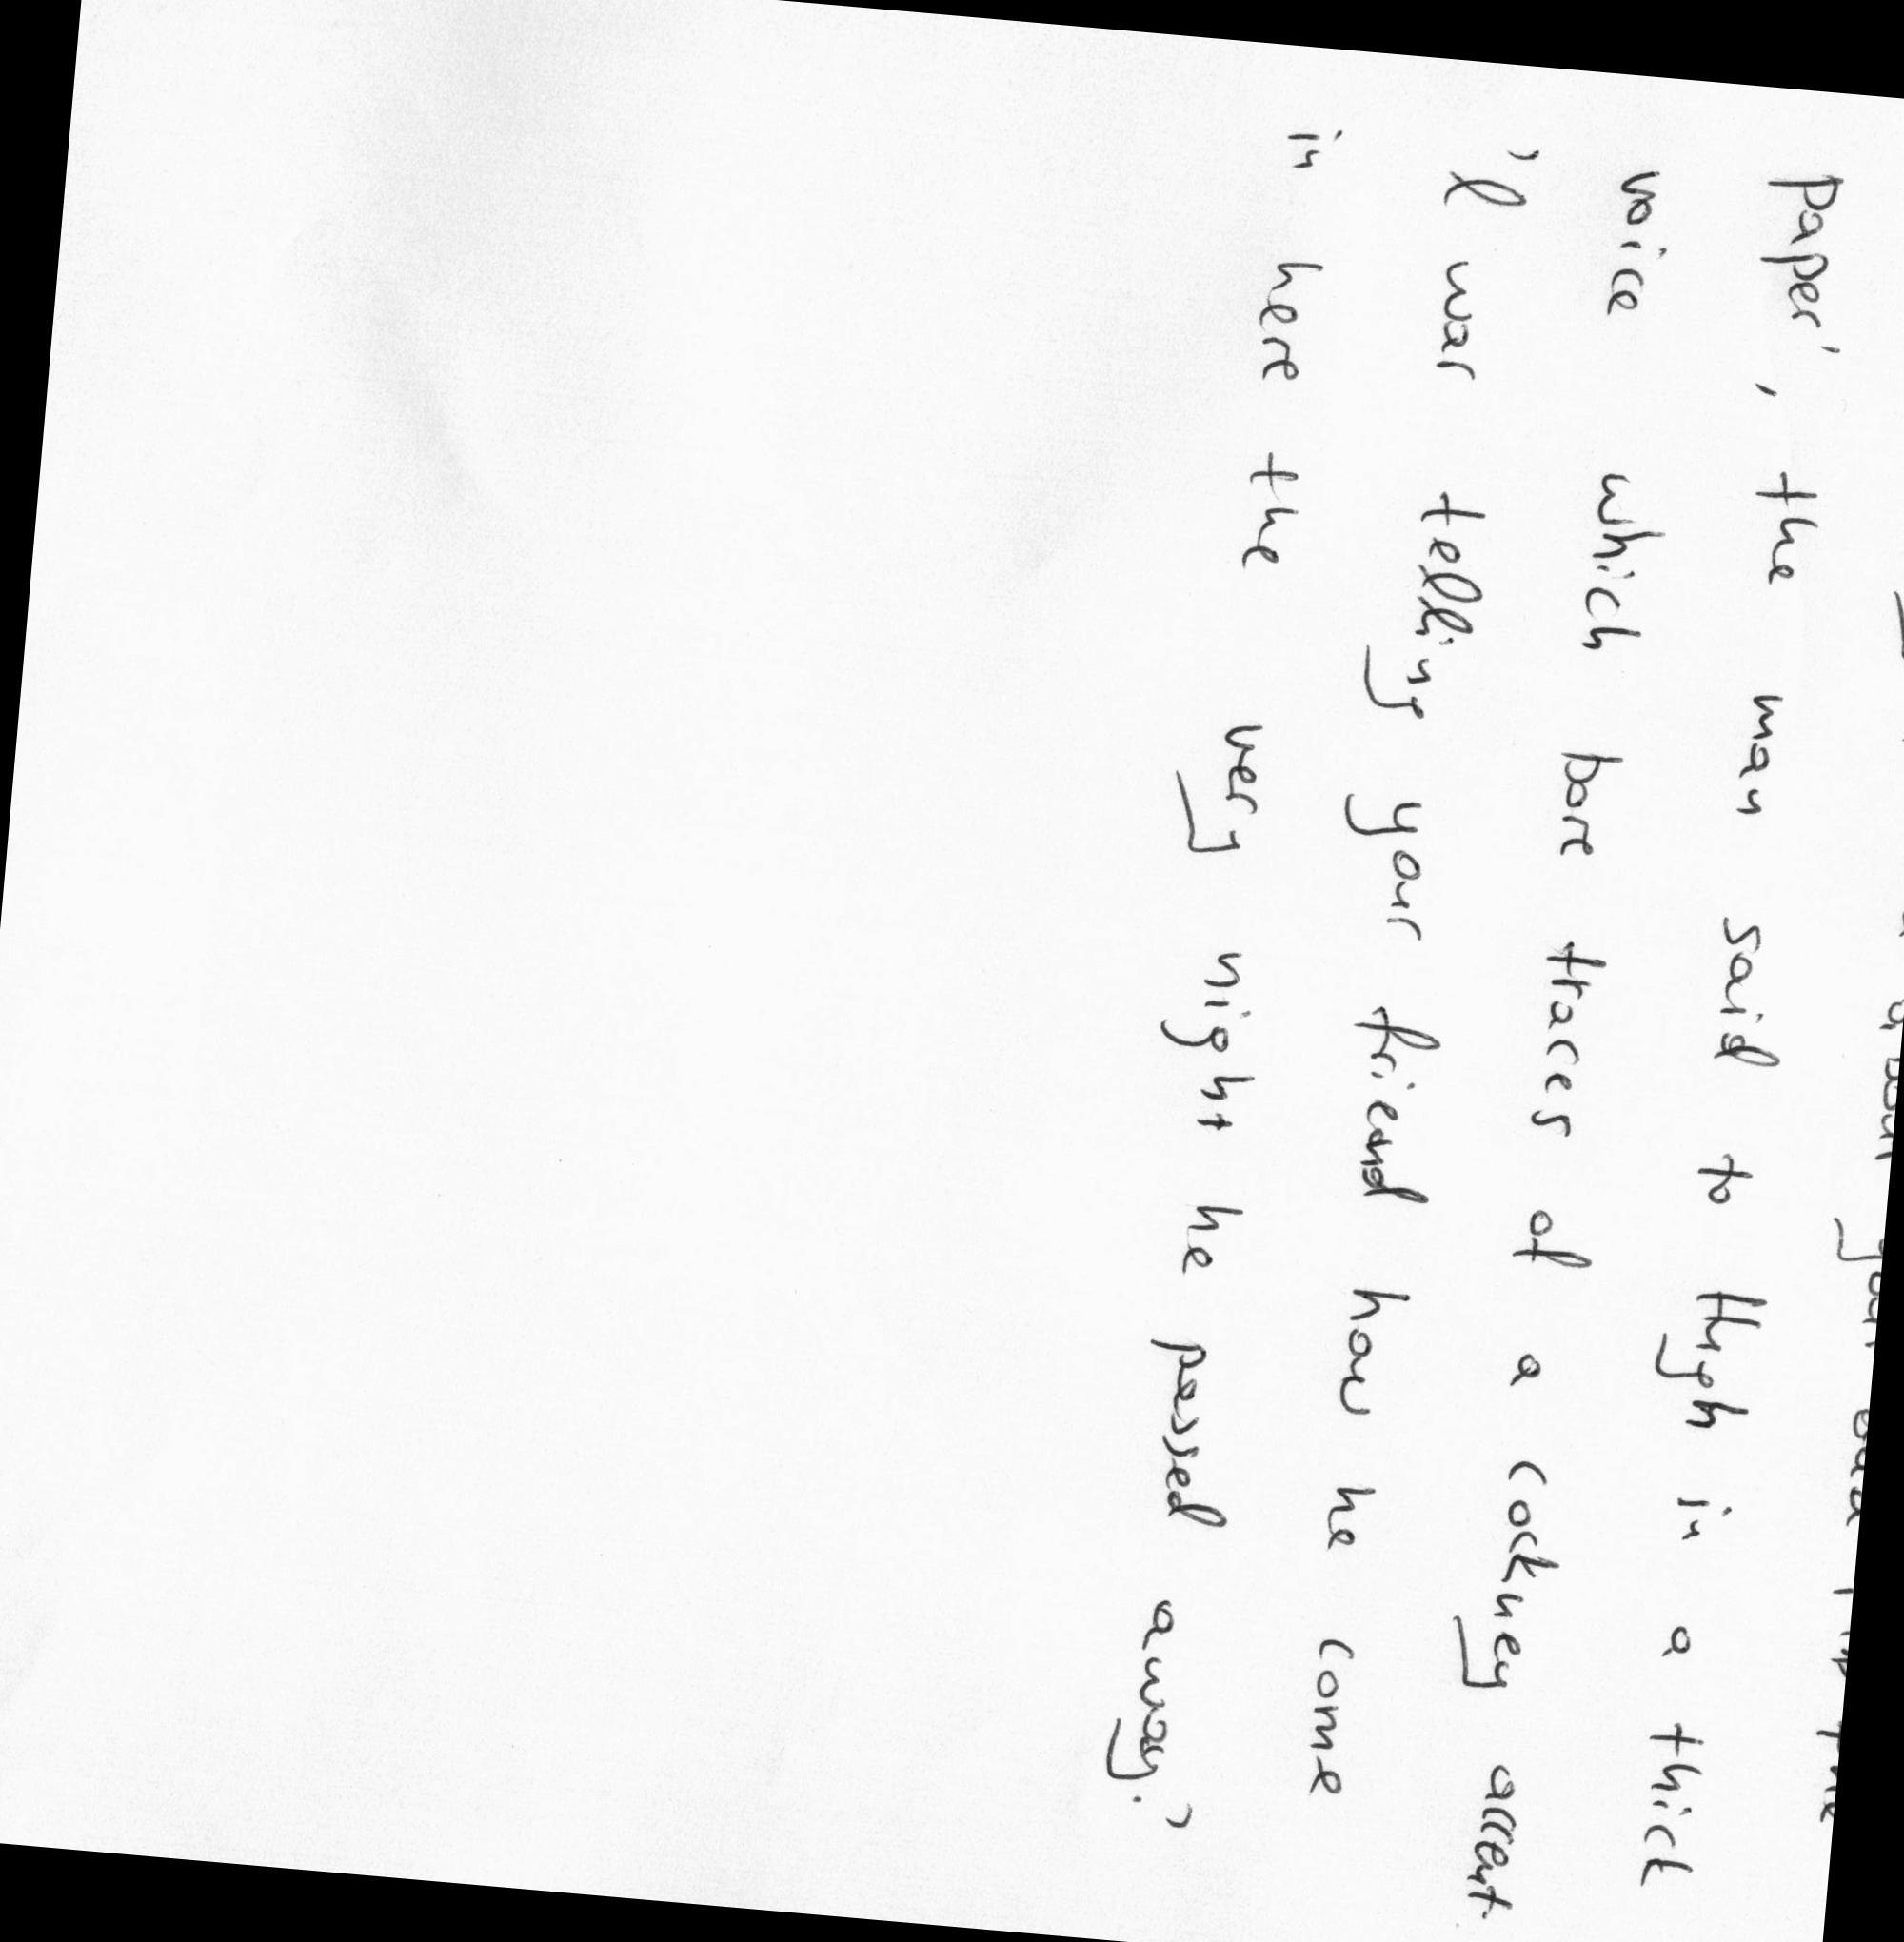 paper', the man said to Thigh in a thick
voice which bore traces of a cockney accent.
'I was telling your friend how he come
in here the very night he passed away.'